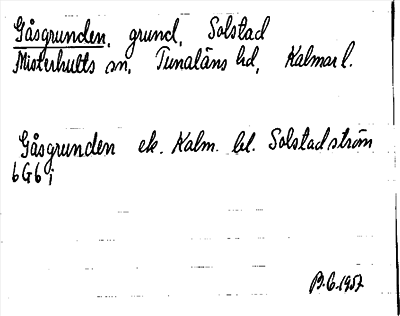 Gåsgrunden, grund, Solstad
Misterhults sn, Tunaläns hd, Kalmar l.
Gåsgrunden ek. Kalm. bl. Solstadström
6G6i
B.G. 1957